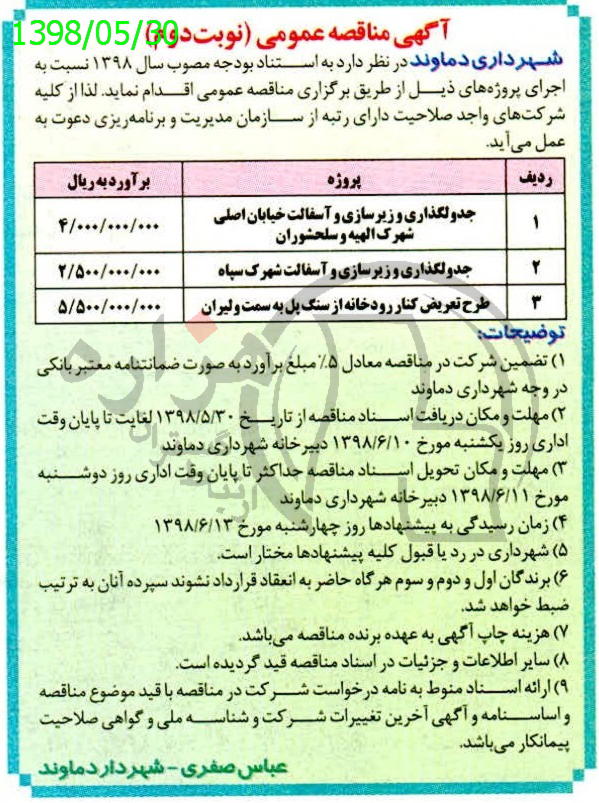 1398/05/30
آگهی مناقصه عمومی (نوبت دوم)
شهرداری دماوند در نظر دارد به استناد بودجه مصوب سال ۱۳۹۸ نسبت به
اجرای پروژه‌های ذیل از طریق برگزاری مناقصه عمومی اقدام نماید. لذا از کلیه
شرکت‌های واجد صلاحیت دارای رتبه از سازمان مدیریت و برنامه‌ریزی دعوت به
عمل می‌آید.
ردیف پروژه برآورد به ریال
۱ جدولگذاری و زیرسازی و آسفالت خیابان اصلی شهرک الهیه و سلحشوران ۴/۰۰۰/۰۰۰/۰۰۰
۲ جدولگذاری و زیرسازی و آسفالت شهرک سپاه ۲/۵۰۰/۰۰۰/۰۰۰
۳ طرح تعریض کنار رودخانه از سنگ پل به سمت ولیران ۵/۵۰۰/۰۰۰/۰۰۰
توضیحات:
۱) تضمین شرکت در مناقصه معادل ۵٪ مبلغ برآورد به صورت ضمانتنامه معتبر بانکی
در وجه شهرداری دماوند
۲) مهلت و مکان دریافت اسناد مناقصه از تاریخ ۱۳۹۸/۵/۳۰ لغایت تا پایان وقت
اداری روز یکشنبه مورخ ۱۳۹۸/۶/۱۰ دبیرخانه شهرداری دماوند
۳) مهلت و مکان تحویل اسناد مناقصه حداکثر تا پایان وقت اداری روز دوشنبه
مورخ ۱۳۹۸/۶/۱۱ دبیرخانه شهرداری دماوند
۴) زمان رسیدگی به پیشنهادها روز چهارشنبه مورخ ۱۳۹۸/۶/۱۳
۵) شهرداری در رد یا قبول کلیه پیشنهادها مختار است.
۶) برندگان اول و دوم و سوم هرگاه حاضر به انعقاد قرارداد نشوند سپرده آنان به ترتیب
ضبط خواهد شد.
۷) هزینه چاپ آگهی به عهده برنده مناقصه می‌باشد.
۸) سایر اطلاعات و جزئیات در اسناد مناقصه قید گردیده است.
۹) ارائه اسناد منوط به نامه درخواست شرکت در مناقصه با قید موضوع مناقصه
و اساسنامه و آگهی آخرین تغییرات شرکت و شناسه ملی و گواهی صلاحیت
پیمانکار می‌باشد.
عباس صفری - شهردار دماوند
هزاره